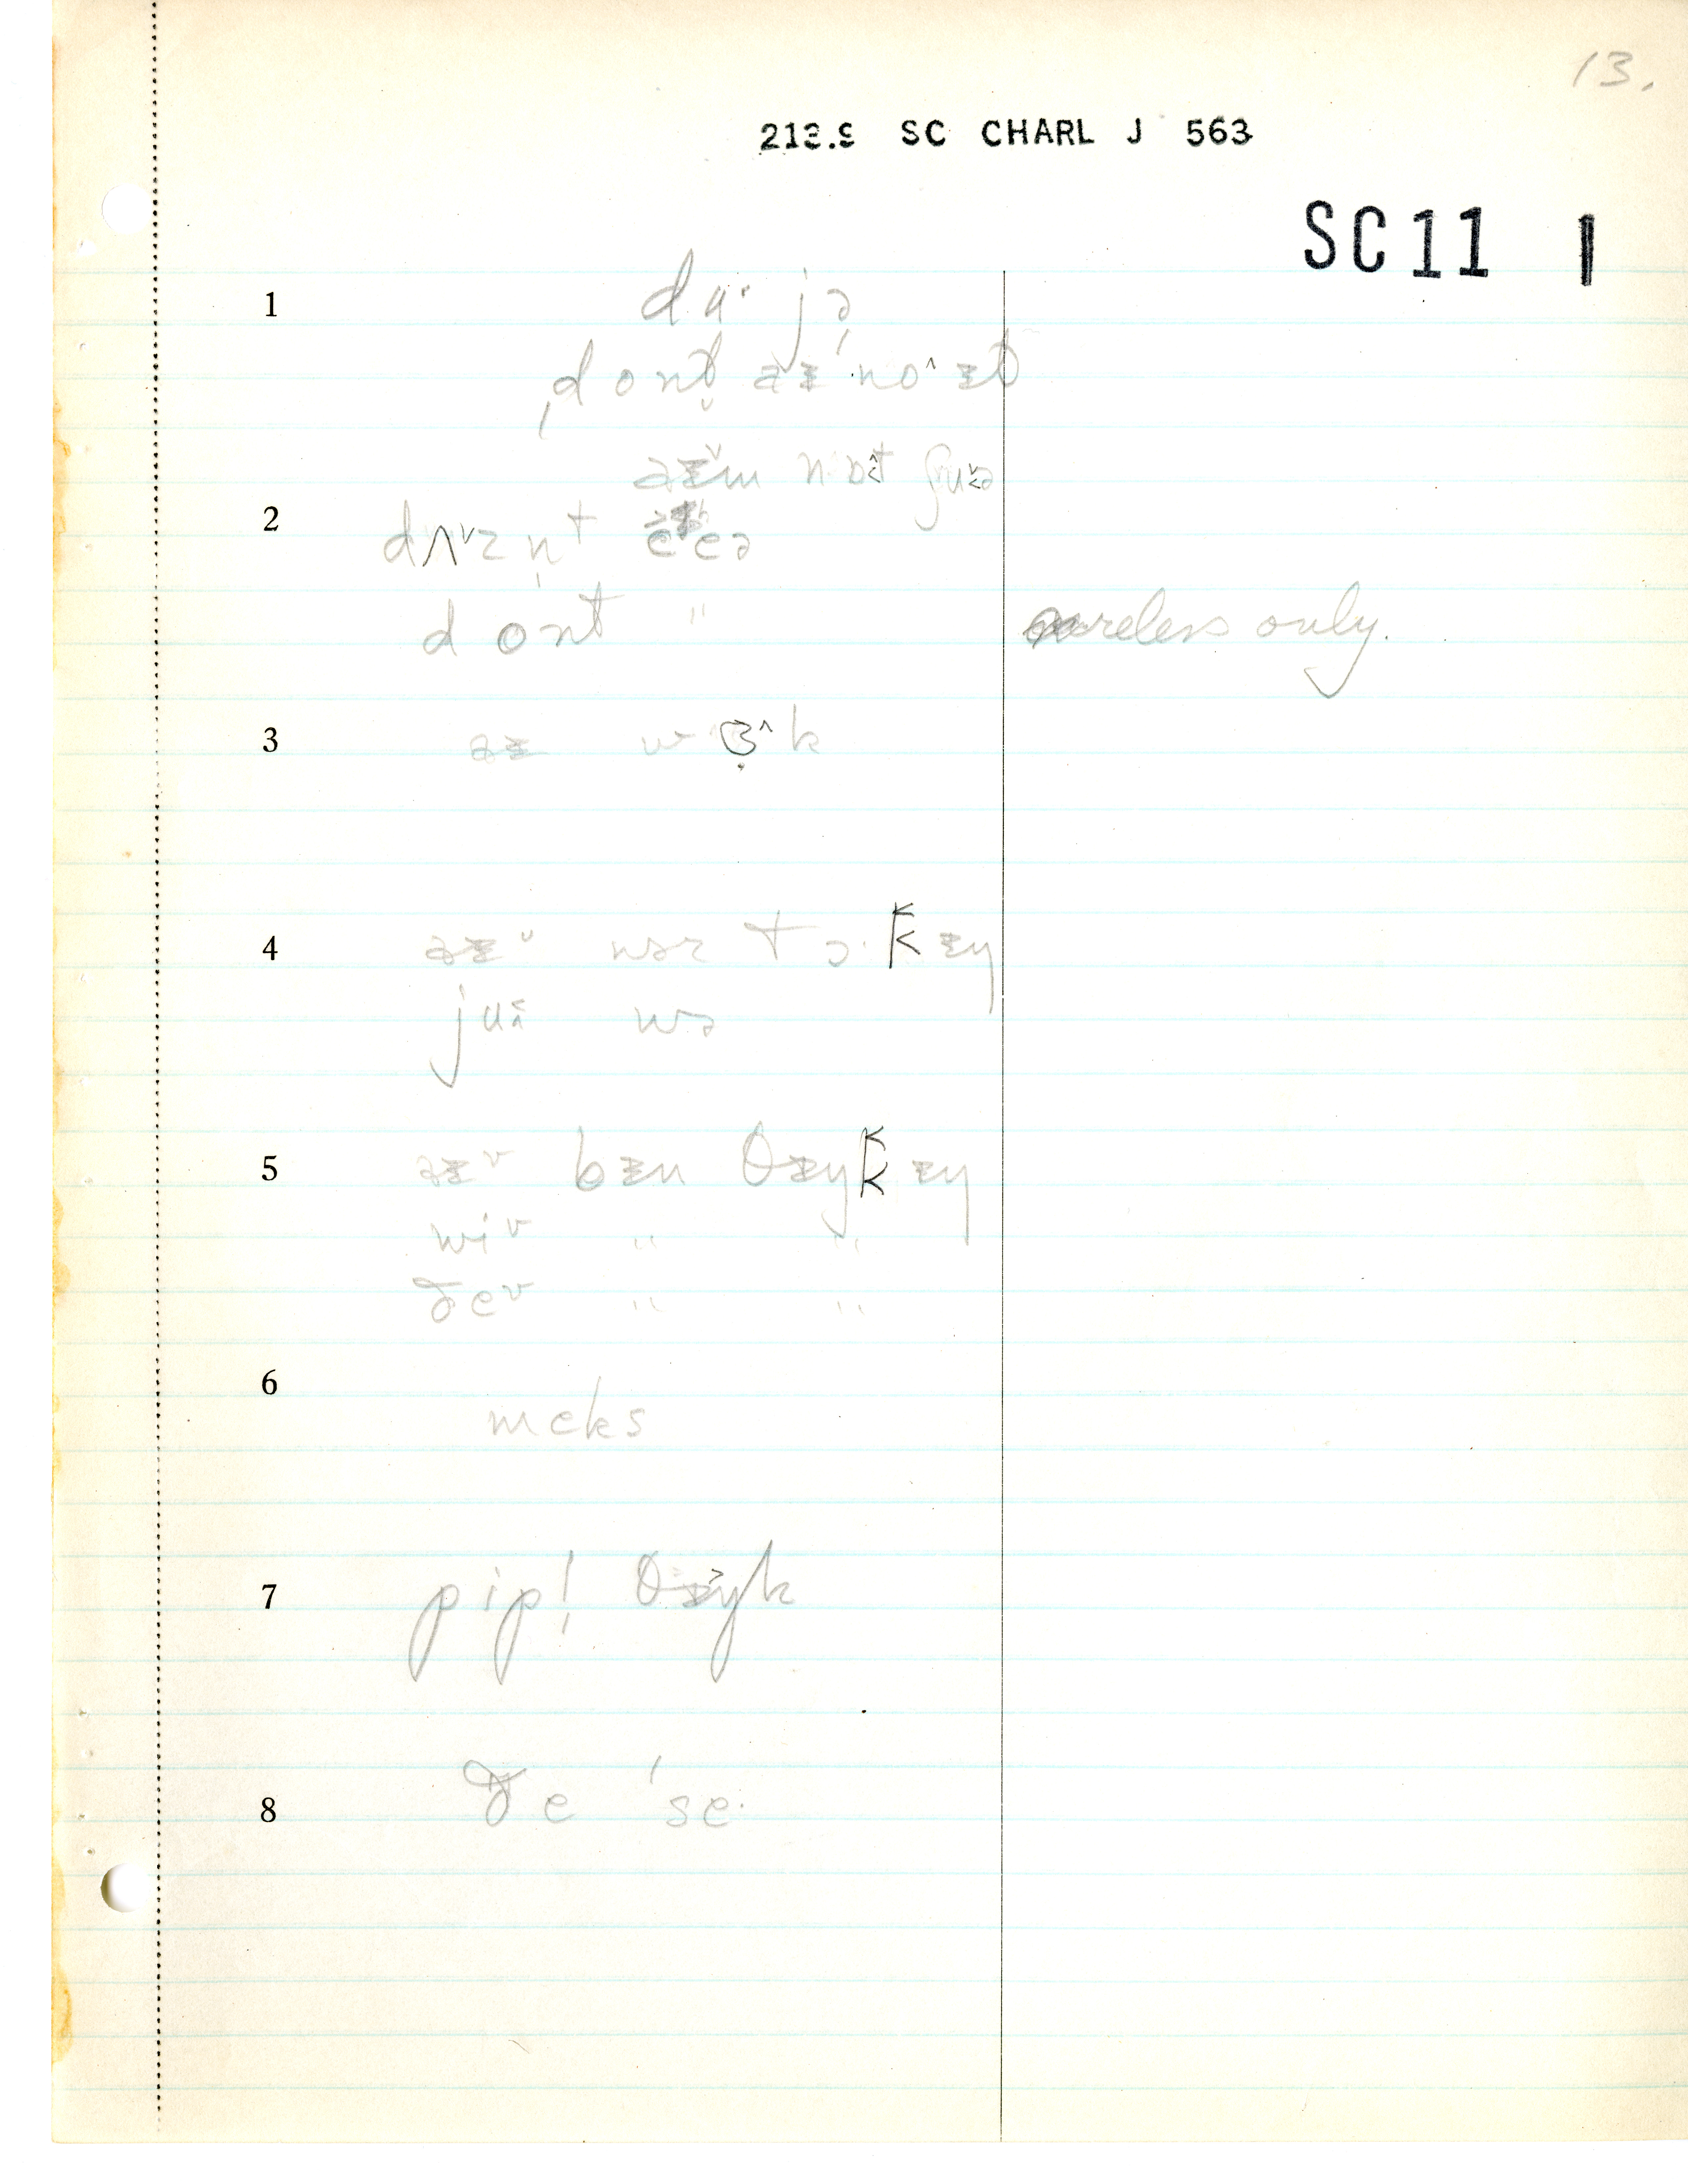 13.
213.9 SC CHARL J 563
SC11 1
1 du· jə
ˌdont ɐɪ ˈno^ ɪt
ɐɪ˅m nɒt ʃuə
2 dʌ˅zn̩t
dont "
careless only.
3 ɐɪ wɜ^k
4 ɐɪ wəz tɔ·kɪŋ
ju wə
5 ɐɪv bɪn θɪŋkɪŋ
wiv " "
ðev " "
6 meks
7 pipl̩ θɪŋk
8 ðe ˈse·